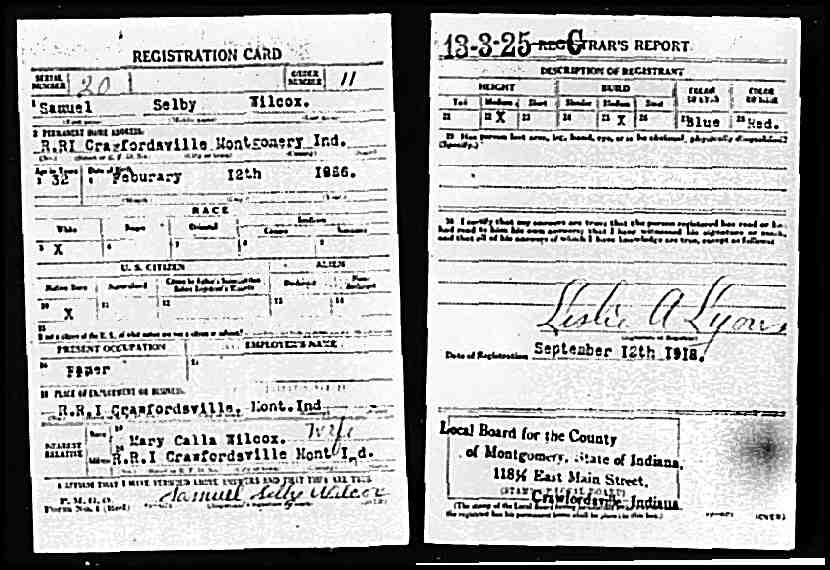 REGISTRATION CARD
SERIAL NUMBER 20 ORDER NUMBER 11
1 Samuel Selby Wilcox.
(First name) (Middle name) (Last name)
2 PERMANENT HOME ADDRESS:
R.RI Crazfordsville Montgonery Ind.
Age in Years Date of Birth
3 32 4 Feburary 12th 1886.
(Month) (Day) (Year)
RACE
White Negro Oriental Indian
Citizen Noncitizen
5 X 6 7 8 9
U. S. CITIZEN ALIEN
Native Born Naturalized Citizen by Father's Naturalization Before Registrant's Majority Declarant Non-declarant
10 X 11 12 13 14
15
If not a citizen of the U. S., of what nation are you a citizen or subject?
PRESENT OCCUPATION EMPLOYER'S NAME
16 17
18 PLACE OF EMPLOYMENT OR BUSINESS:
R.R.I Crawfordsville, Mont.Ind
NEAREST RELATIVE
Name 19 Mary Calla Wilcox. Wife
Address 20 R.R.I Crawfordsville Mont I d.
I AFFIRM THAT I HAVE VERIFIED ABOVE ANSWERS AND THAT THEY ARE TRUE
P. M. G. O.
Form No. 1 (Red)
Samuel Selby Wilcox
13-3-25 C REGISTRAR'S REPORT
DESCRIPTION OF REGISTRANT
HEIGHT BUILD COLOR OF EYES COLOR OF HAIR
Tall Medium Short Slender Medium Stout
21 22 X 23 24 25 X 26 27 Blue 28 Red.
29 Has person lost arm, leg, hand, eye, or is he obviously physically disqualified?
(Specify.)
30 I certify that my answers are true; that the person registered has read or has
had read to him his own answers; that I have witnessed his signature or mark,
and that all of his answers of which I have knowledge are true, except as follows:
Leslie A Lyons
(Signature of Registrar)
Date of Registration September 12th 1918.
Local Board for the County
of Montgomery, State of Indiana,
118½ East Main Street,
(STAMP OF LOCAL BOARD)
Crawfordsville, Indiana
(The stamp of the Local Board having jurisdiction
the registrant has his permanent home shall be placed in this box.)
(OVER)